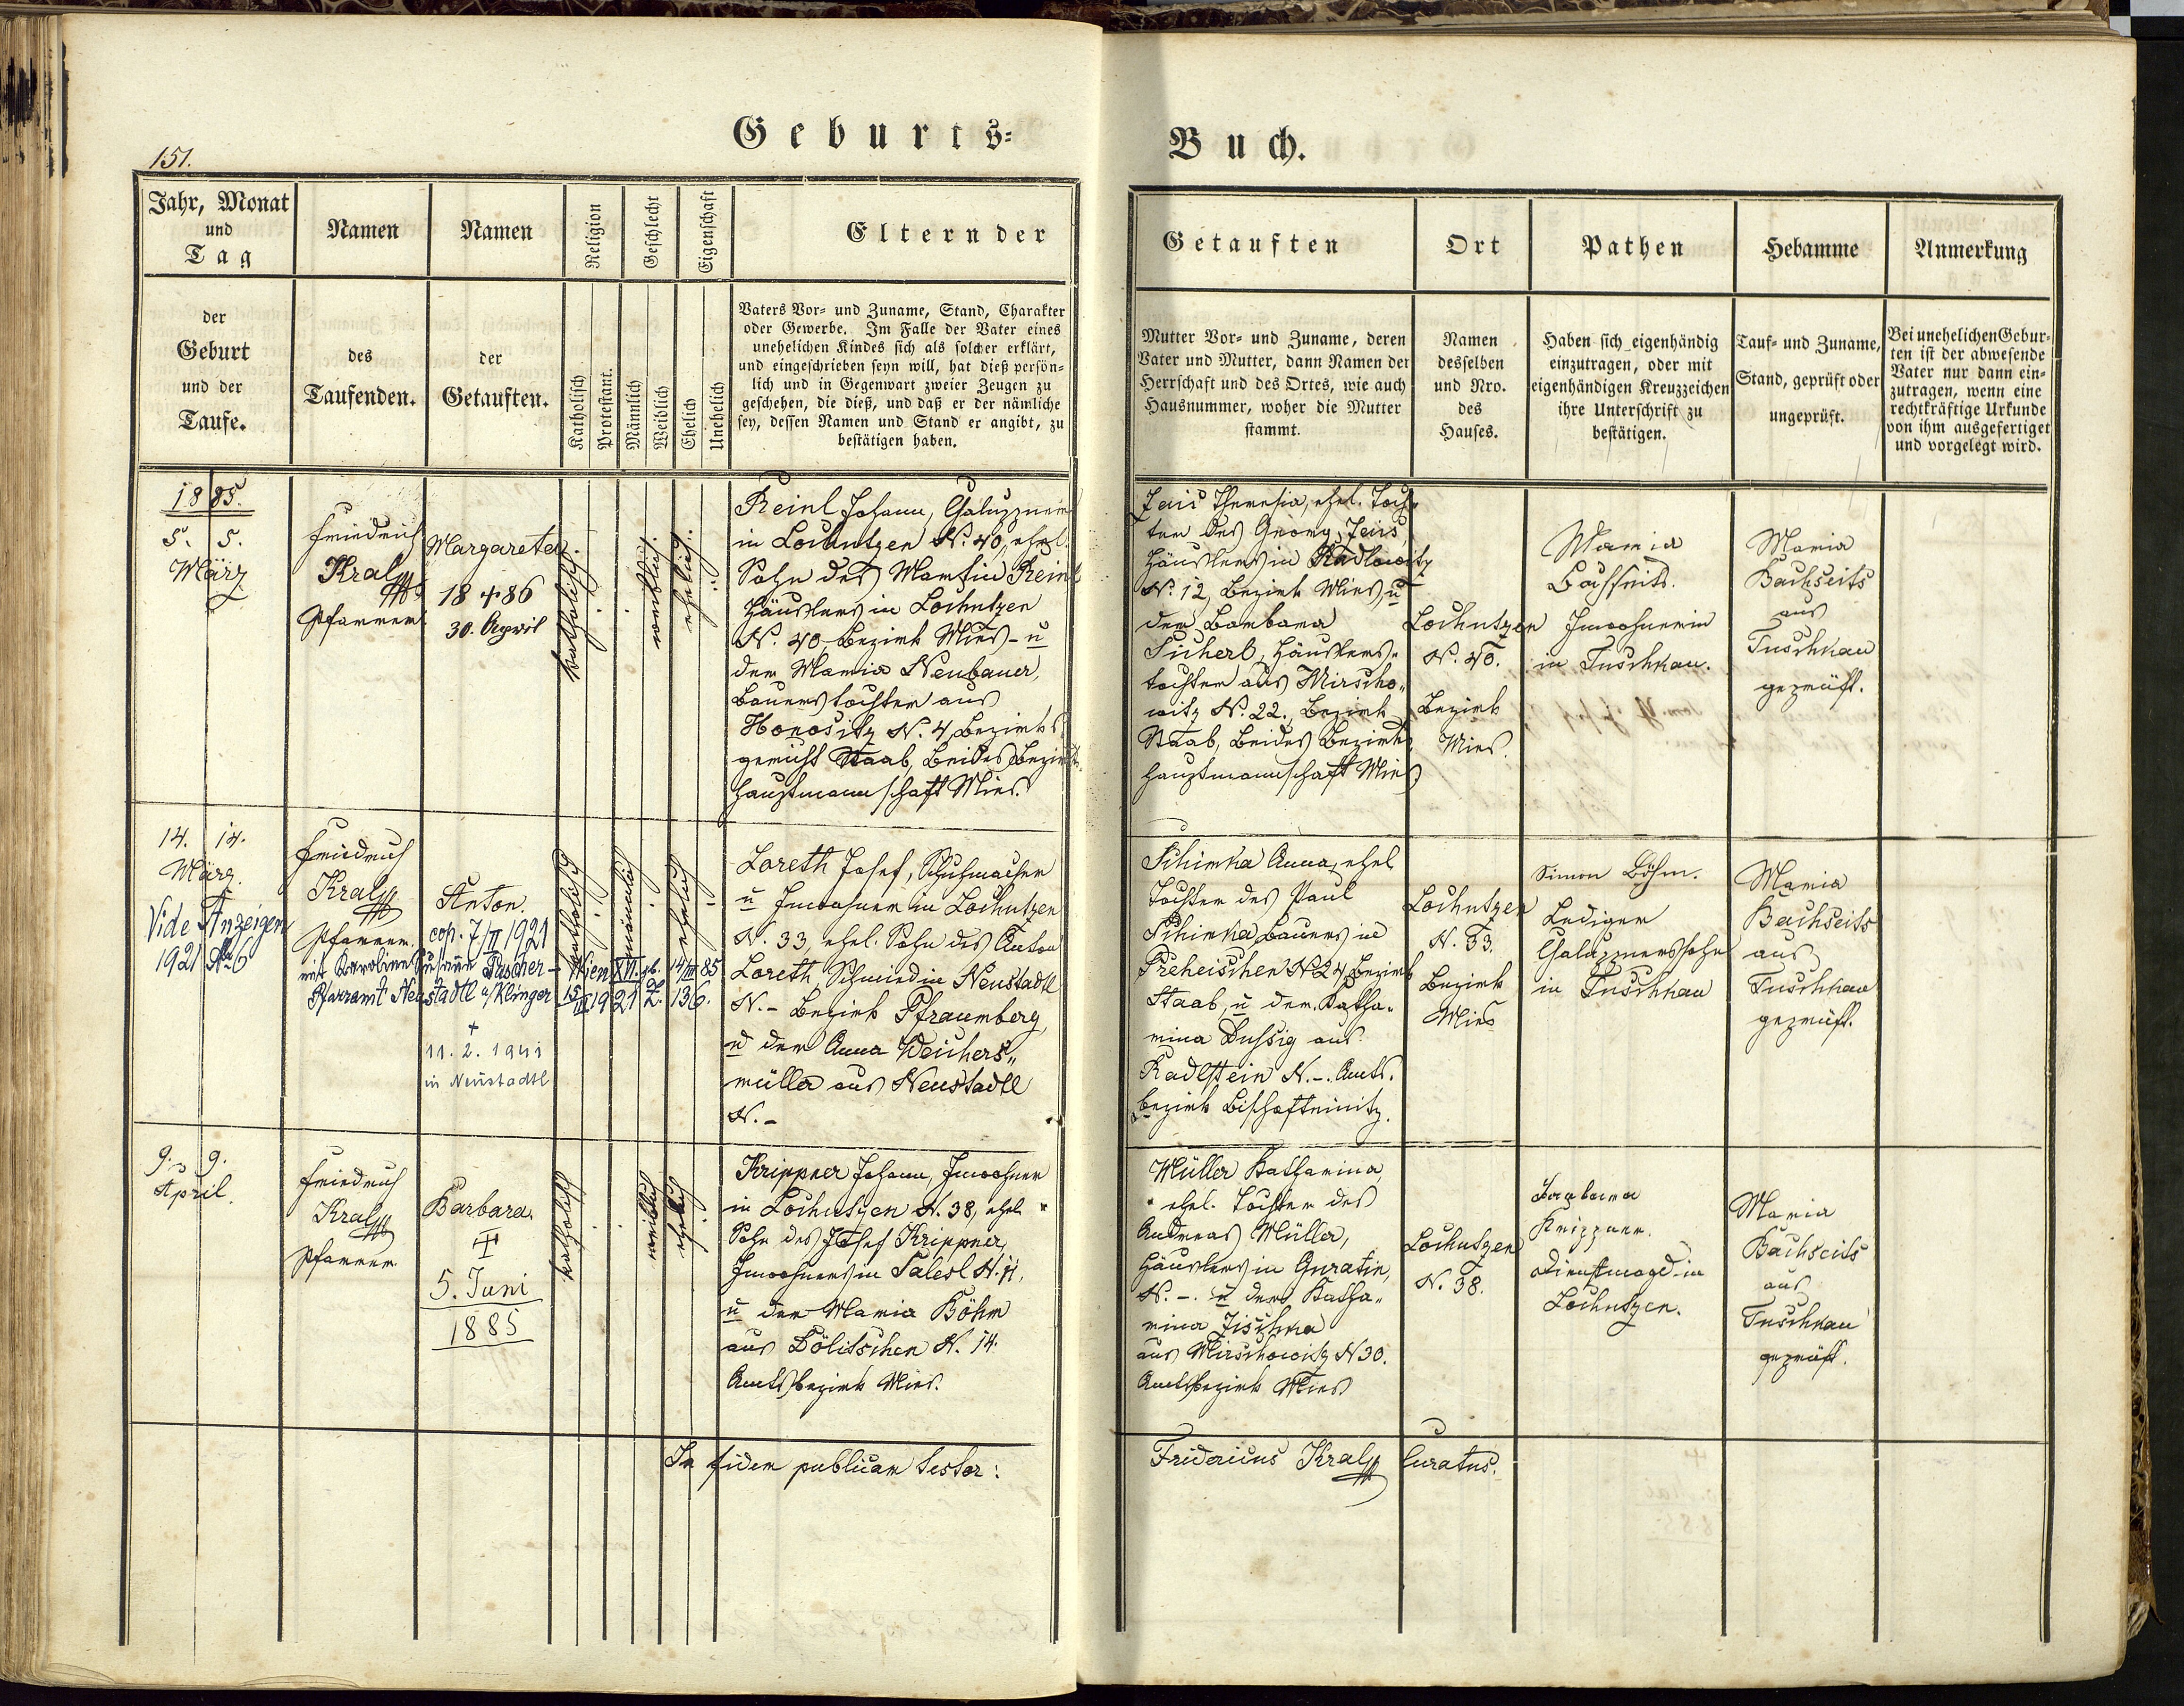 151.
Geburts-
Buch.
Jahr, Monat
und
Tag
Namen
Namen
Religion
Geschlecht
Eigenschaft
Eltern der
der
Geburt
und der
Taufe.
des
Taufenden.
der
Getauften.
Katholisch
Protestant.
Männlich
Weiblich
Ehelich
Unehelich
Vaters Vor- und Zuname, Stand, Charakter
oder Gewerbe. Im Falle der Vater eines
unehelichen Kindes sich als solcher erklärt,
und eingeschrieben seyn will, hat dieß persön-
lich und in Gegenwart zweier Zeugen zu
geschehen, die dieß, und daß er der nämliche
sey, dessen Namen und Stand er angibt, zu
bestätigen haben.
Getauften
Ort
Pathen
Hebamme
Anmerkung
Mutter Vor- und Zuname, deren
Vater und Mutter, dann Namen der
Herrschaft und des Ortes, wie auch
Hausnummer, woher die Mutter
stammt.
Namen
desselben
und Nro.
des
Hauses.
Haben sich eigenhändig
einzutragen, oder mit
eigenhändigen Kreuzzeichen
ihre Unterschrift zu
bestätigen.
Tauf- und Zuname,
Stand, geprüft oder
ungeprüft.
Bei unehelichen Gebur-
ten ist der abwesende
Vater nur dann ein-
zutragen, wenn eine
rechtkräftige Urkunde
von ihm ausgefertiget
und vorgelegt wird.
1885.
5. 5.
März
Friedrich
Kral
Pfarrer.
Margareta.
18 + 86
30. April
katholisch.
weiblich.
ehelich.
Reinl Johann, Chaluppner
in Lochutzen N. 40, ehel.
Sohn des Martin Reinl
Häuslers in Lochutzen
N. 40, Bezirk Mies - u
der Maria Neubauer,
Bauerstochter aus
Honositz N. 4, Bezirks
gericht Staab, beides Bezirks
hauptmannschaft Mies.
Jeis Theresia, ehel. Toch
ter des Georg Jeis,
Häuslers in Radlowitz
N. 12, Bezirk Mies, u
der Barbara
Sucherl, Häuslers-
tochter aus Mirscho-
witz N. 22., Bezirk
Staab, beides Bezirks
hauptmannschaft Mies
Lochutzen
N. 40.
Bezirk
Mies.
Maria
Bachseits.
Inwohnerin
in Tuschkau.
Maria
Bachseits
aus
Tuschkau
geprüft.
14. 14.
März.
Vide Anzeigen
1921 No 6
Friedrich
Kral
Pfarrer.
Anton.
cop. 7/II 1921
mit Karoline Susanne Pascher - Wien XVI. gb. 14/III 85
Pfarramt Neustadtl a/Klinger 15/II 1921 Z. 136.
+
11. 2. 1941
in Neustadtl
katholisch
männlich
ehelich
Loreth Josef, Schuhmacher
u Inwohner in Lochutzen
N. 33, ehel. Sohn des Anton
Loreth, Schmied in Neustadtl
N. - Bezirk Pfraumberg,
u der Anna Weichers-
müller aus Neustadtl
N. -
Schimka Anna, ehel
Tochter des Paul
Schimka, Bauers in
Preheischen N 24, Bezirk
Staab, u der Katha-
rina Dussig aus
Radlstein N. -. Amts.
bezirk Bischofteinitz.
Lochutzen
N. 33.
Bezirk
Mies
Simon Böhm.
Lediger
Chaluppnerssohn
in Tuschkau
Maria
Bachseits
aus
Tuschkau
geprüft.
9. 9.
April.
Friedrich
Kral
Pfarrer
Barbara.
5. Juni
1885
katholisch
weiblich
ehelich
Krippner Johann, Inwohner
in Lochutzen N. 38, ehel.
Sohn des Josef Krippner,
Inwohners in Salesl N. 11,
u der Maria Böhm
aus Dölitschen N. 14.
Amtsbezirk Mies.
Müller Katharina,
ehel. Tochter des
Andreas Müller,
Häuslers in Guratin,
N. -. u der Katha-
rina Jischka
aus Mirschowitz N 30.
Amtsbezirk Mies
Lochutzen
N. 38.
Barbara
Krippner.
Dienstmagd in
Lochutzen.
Maria
Bachseits
aus
Tuschkau
geprüft.
In fidem publicam testor:
Fridericus Kral Curatus.